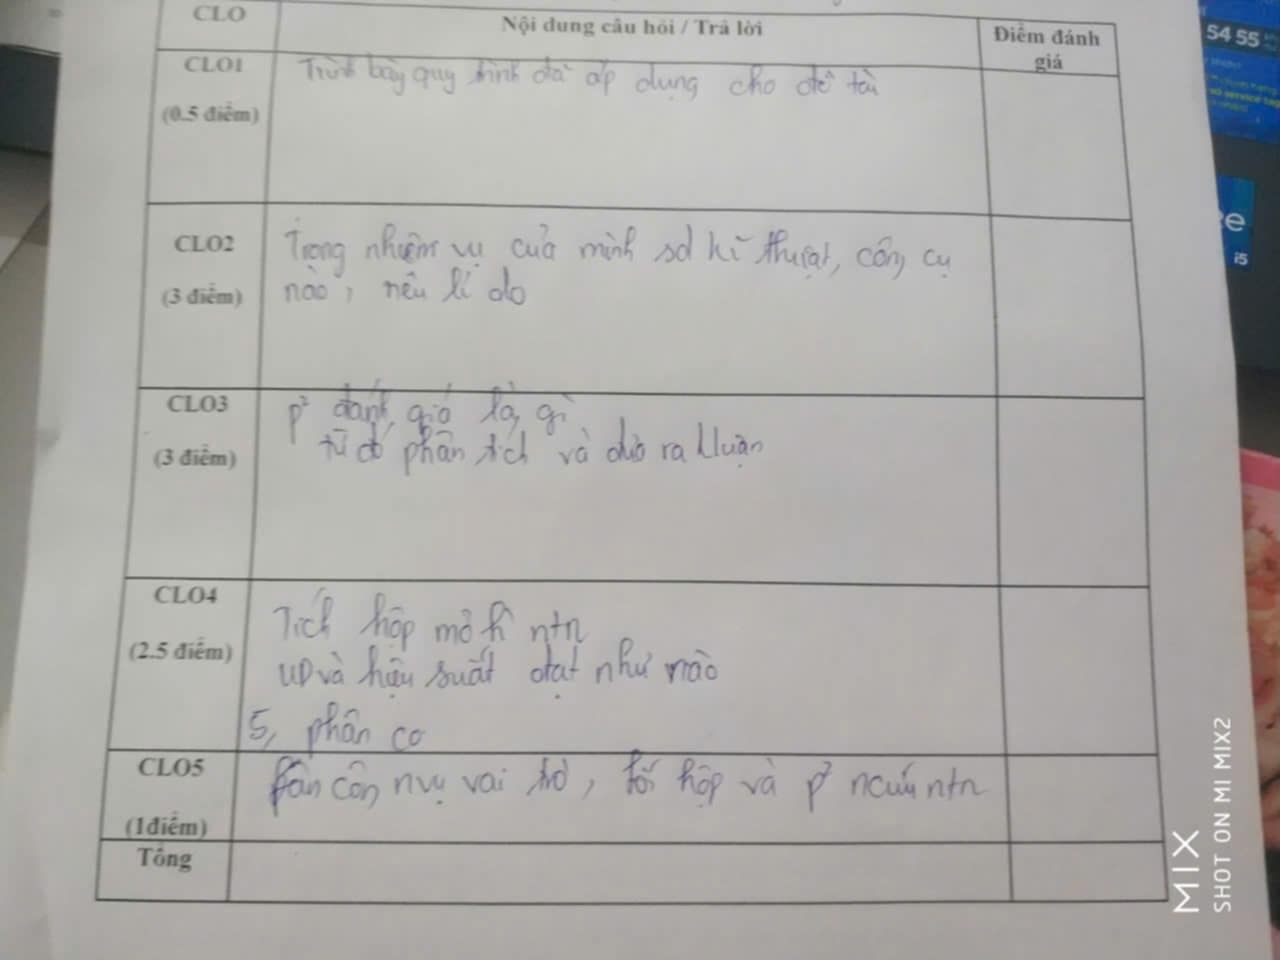 CLO Nội dung câu hỏi / Trả lời Điểm đánh giá
CLO1
(0.5 điểm)
Trình bày quy trình đã áp dụng cho đề tài
CLO2
(3 điểm)
Trong nhiệm vụ của mình sd kĩ thuật, công cụ
nào, nêu lí do
CLO3
(3 điểm)
p² đánh giá là gì
từ đó phân tích và đưa ra kluận
CLO4
(2.5 điểm)
Tích hợp mô hì ntn
UD và hiệu suất đạt như nào
5, phân co
CLO5
(1điểm)
phân côn nvụ vai trò, hợp và p² ncứu ntn
Tổng
54 55
i5
MIX
SHOT ON MI MIX2